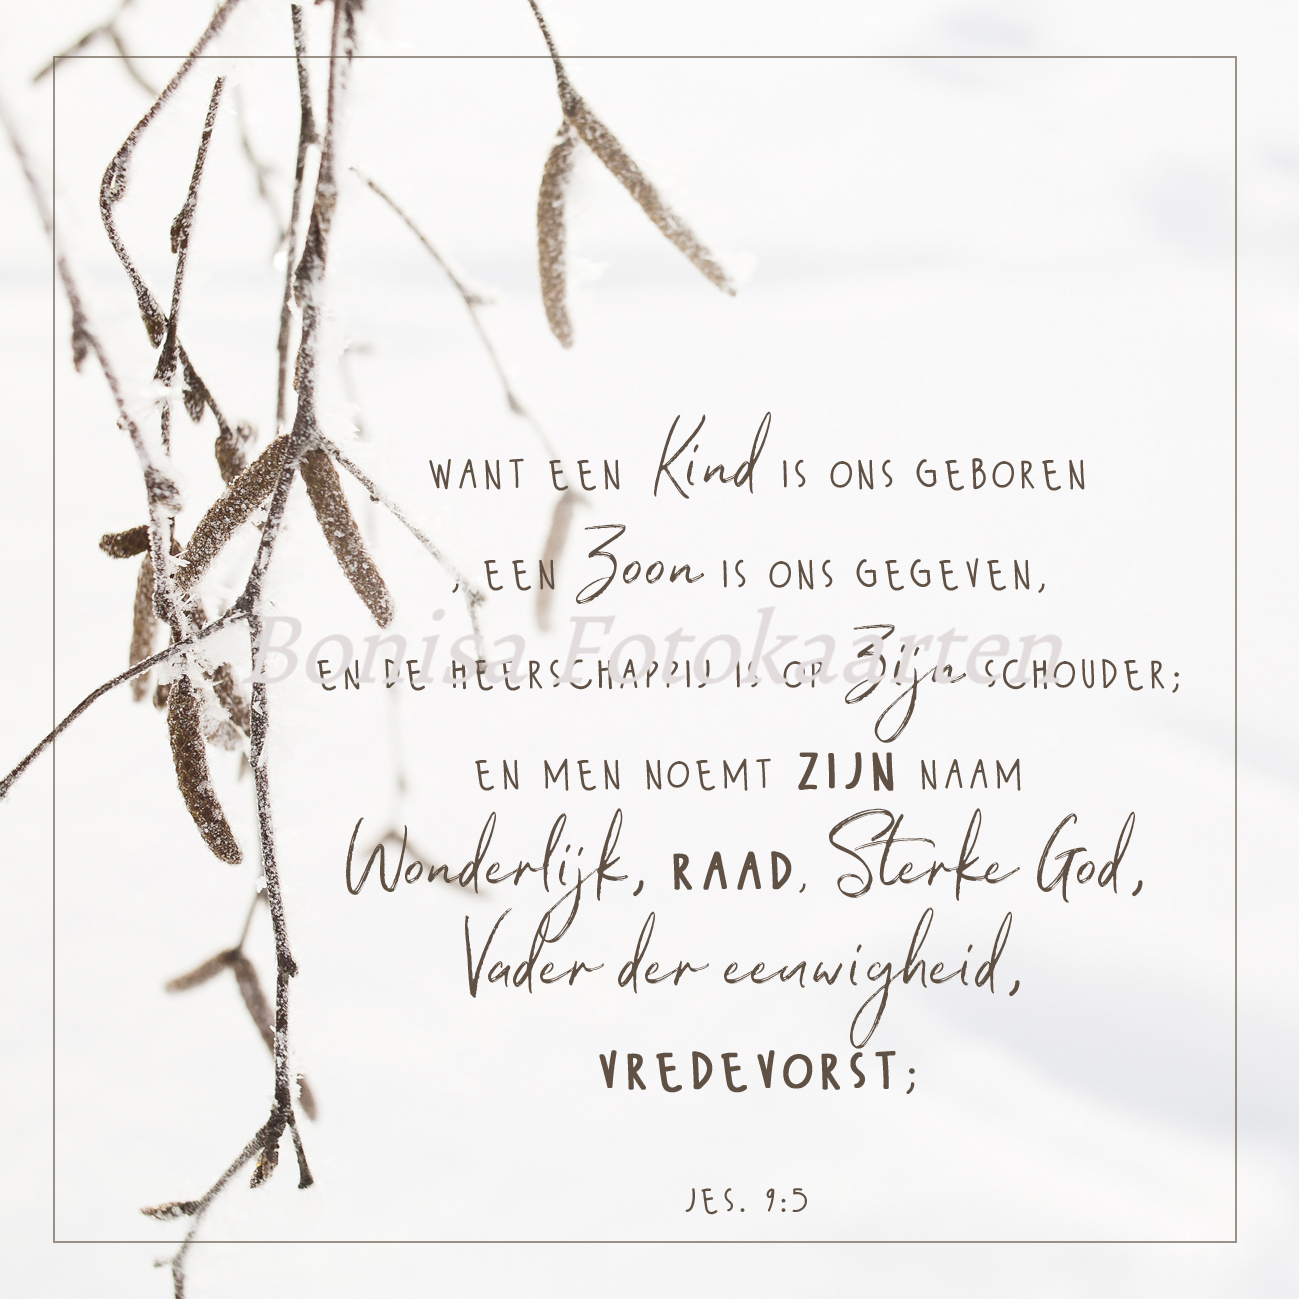 WANT EEN Kind IS ONS GEBOREN
, EEN Zoon IS ONS GEGEVEN,
Bonisa Fotokaarten
EN DE HEERSCHAPPIJ IS OP Zijn SCHOUDER;
EN MEN NOEMT ZIJN NAAM
Wonderlijk, RAAD, Sterke God,
Vader der eeuwigheid,
VREDEVORST;
JES. 9:5